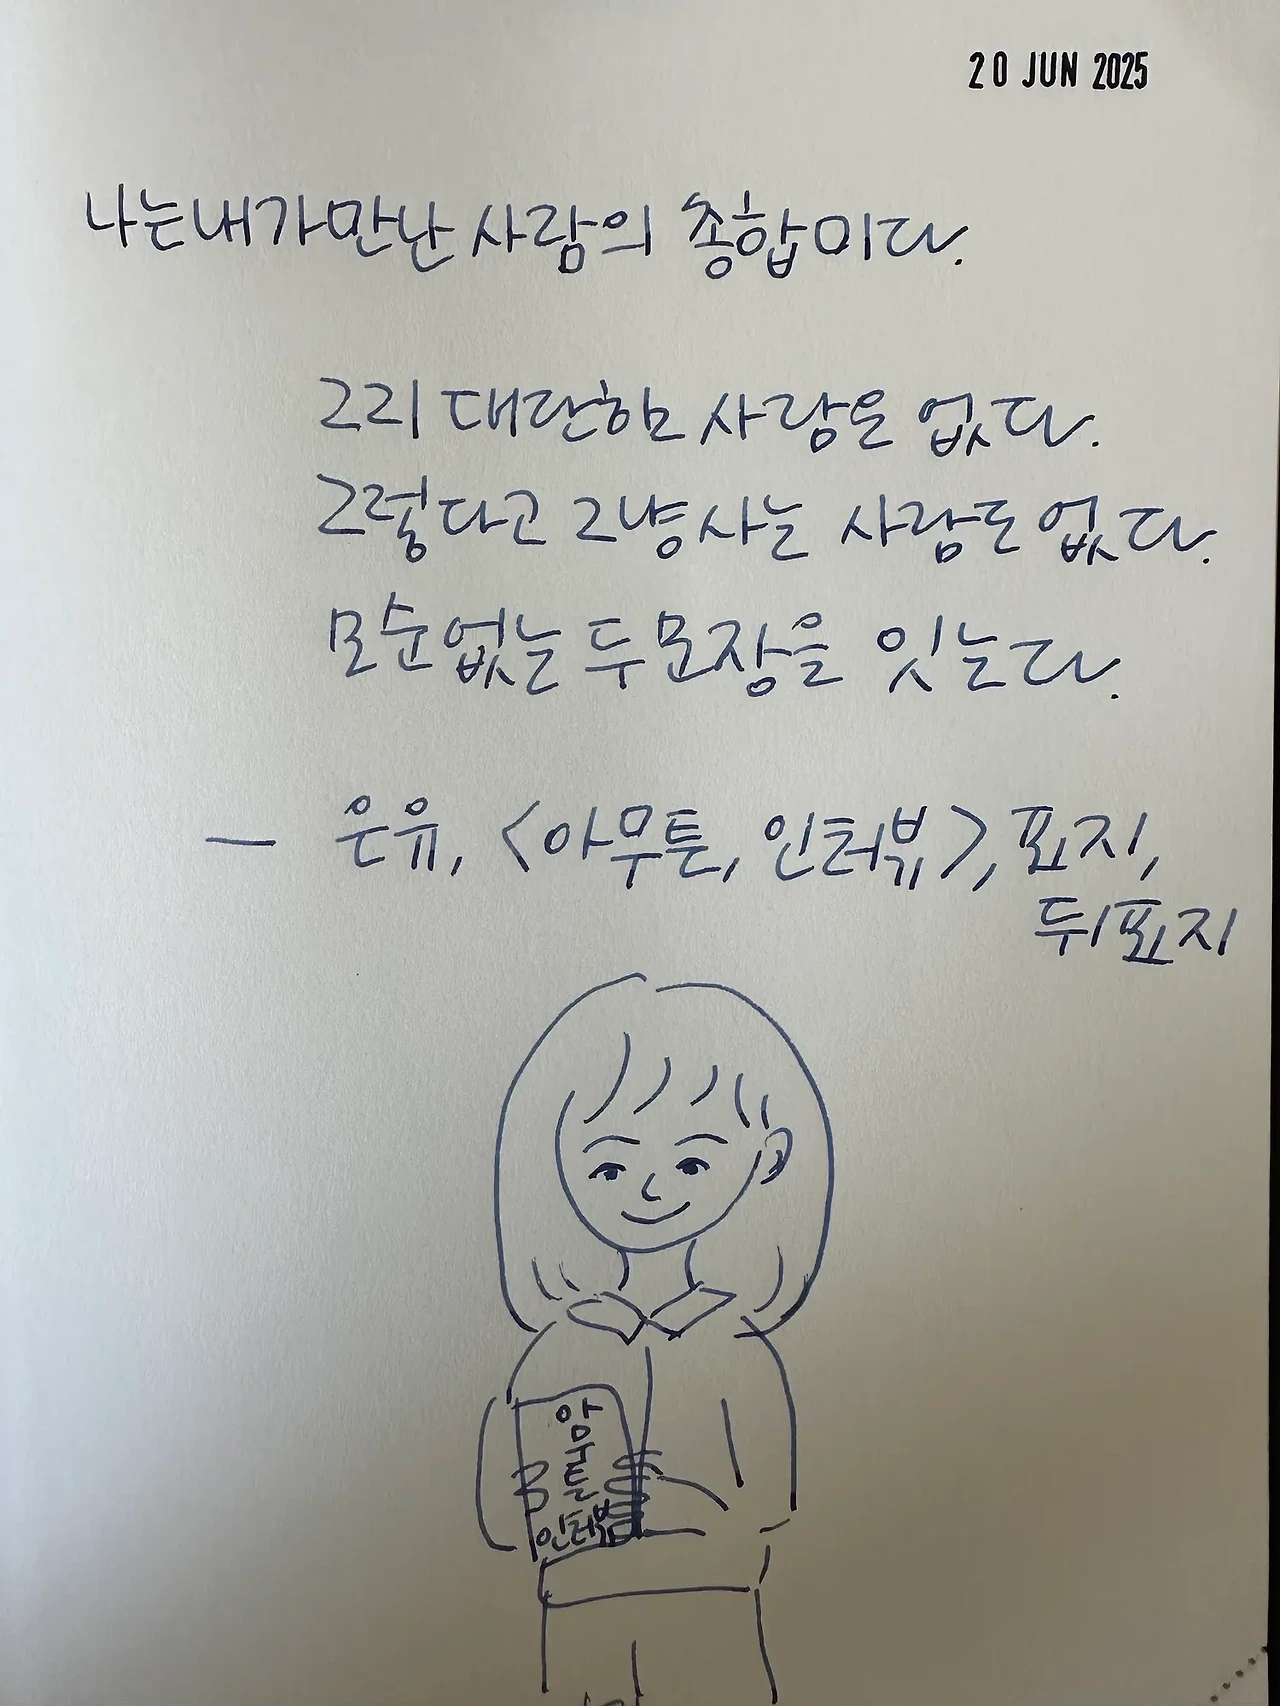 20 JUN 2025
나는 내가 만난 사람의 총합이다.
그리 대단한 사람은 없다.
그렇다고 그냥 사는 사람도 없다.
모순 없는 두 문장을 잇는다.
— 은유, <아무튼, 인터뷰>, 표지,
뒤표지
아
무
튼
인터뷰